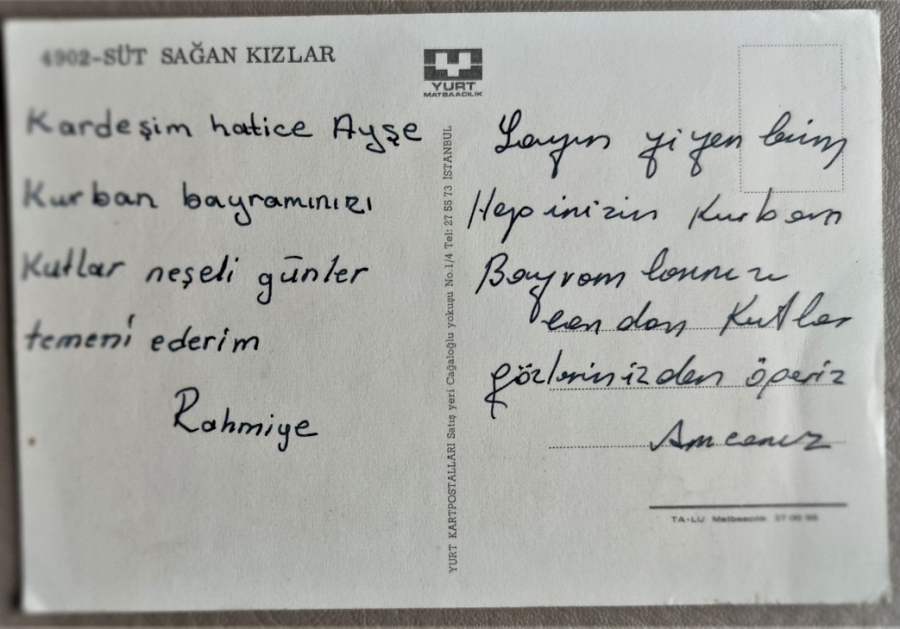 4902-SÜT SAĞAN KIZLAR
YURT
MATBAACILIK
Kardeşim hatice Ayşe
Kurban bayramınızı
Kutlar neşeli günler
temeni ederim
Rahmiye
YURT KARTPOSTALLARI Satış yeri Cağaloğlu yokuşu No.1/4 Tel: 27 55 73 İSTANBUL
Sayın yiyenlerim
Hepinizin Kurban
Bayramlarınızı
candan Kutlar
gözlerinizden öperiz
Amcanız
TA-LU Matbaacılık